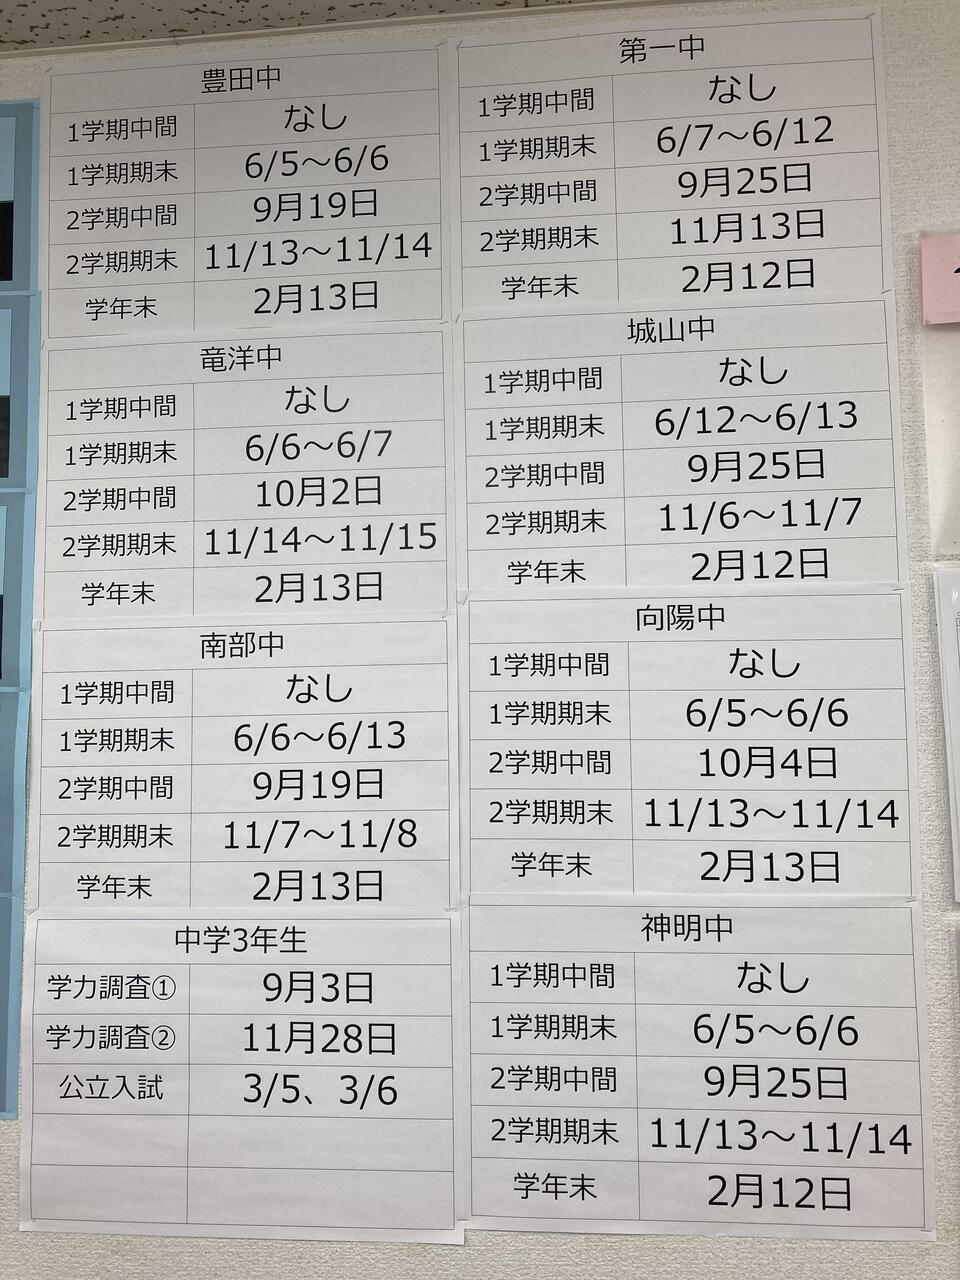 豊田中
1学期中間 なし
1学期期末 6/5～6/6
2学期中間 9月19日
2学期期末 11/13～11/14
学年末 2月13日
竜洋中
1学期中間 なし
1学期期末 6/6～6/7
2学期中間 10月2日
2学期期末 11/14～11/15
学年末 2月13日
南部中
1学期中間 なし
1学期期末 6/6～6/13
2学期中間 9月19日
2学期期末 11/7～11/8
学年末 2月13日
中学3年生
学力調査① 9月3日
学力調査② 11月28日
公立入試 3/5、3/6
第一中
1学期中間 なし
1学期期末 6/7～6/12
2学期中間 9月25日
2学期期末 11月13日
学年末 2月12日
城山中
1学期中間 なし
1学期期末 6/12～6/13
2学期中間 9月25日
2学期期末 11/6～11/7
学年末 2月12日
向陽中
1学期中間 なし
1学期期末 6/5～6/6
2学期中間 10月4日
2学期期末 11/13～11/14
学年末 2月13日
神明中
1学期中間 なし
1学期期末 6/5～6/6
2学期中間 9月25日
2学期期末 11/13～11/14
学年末 2月12日